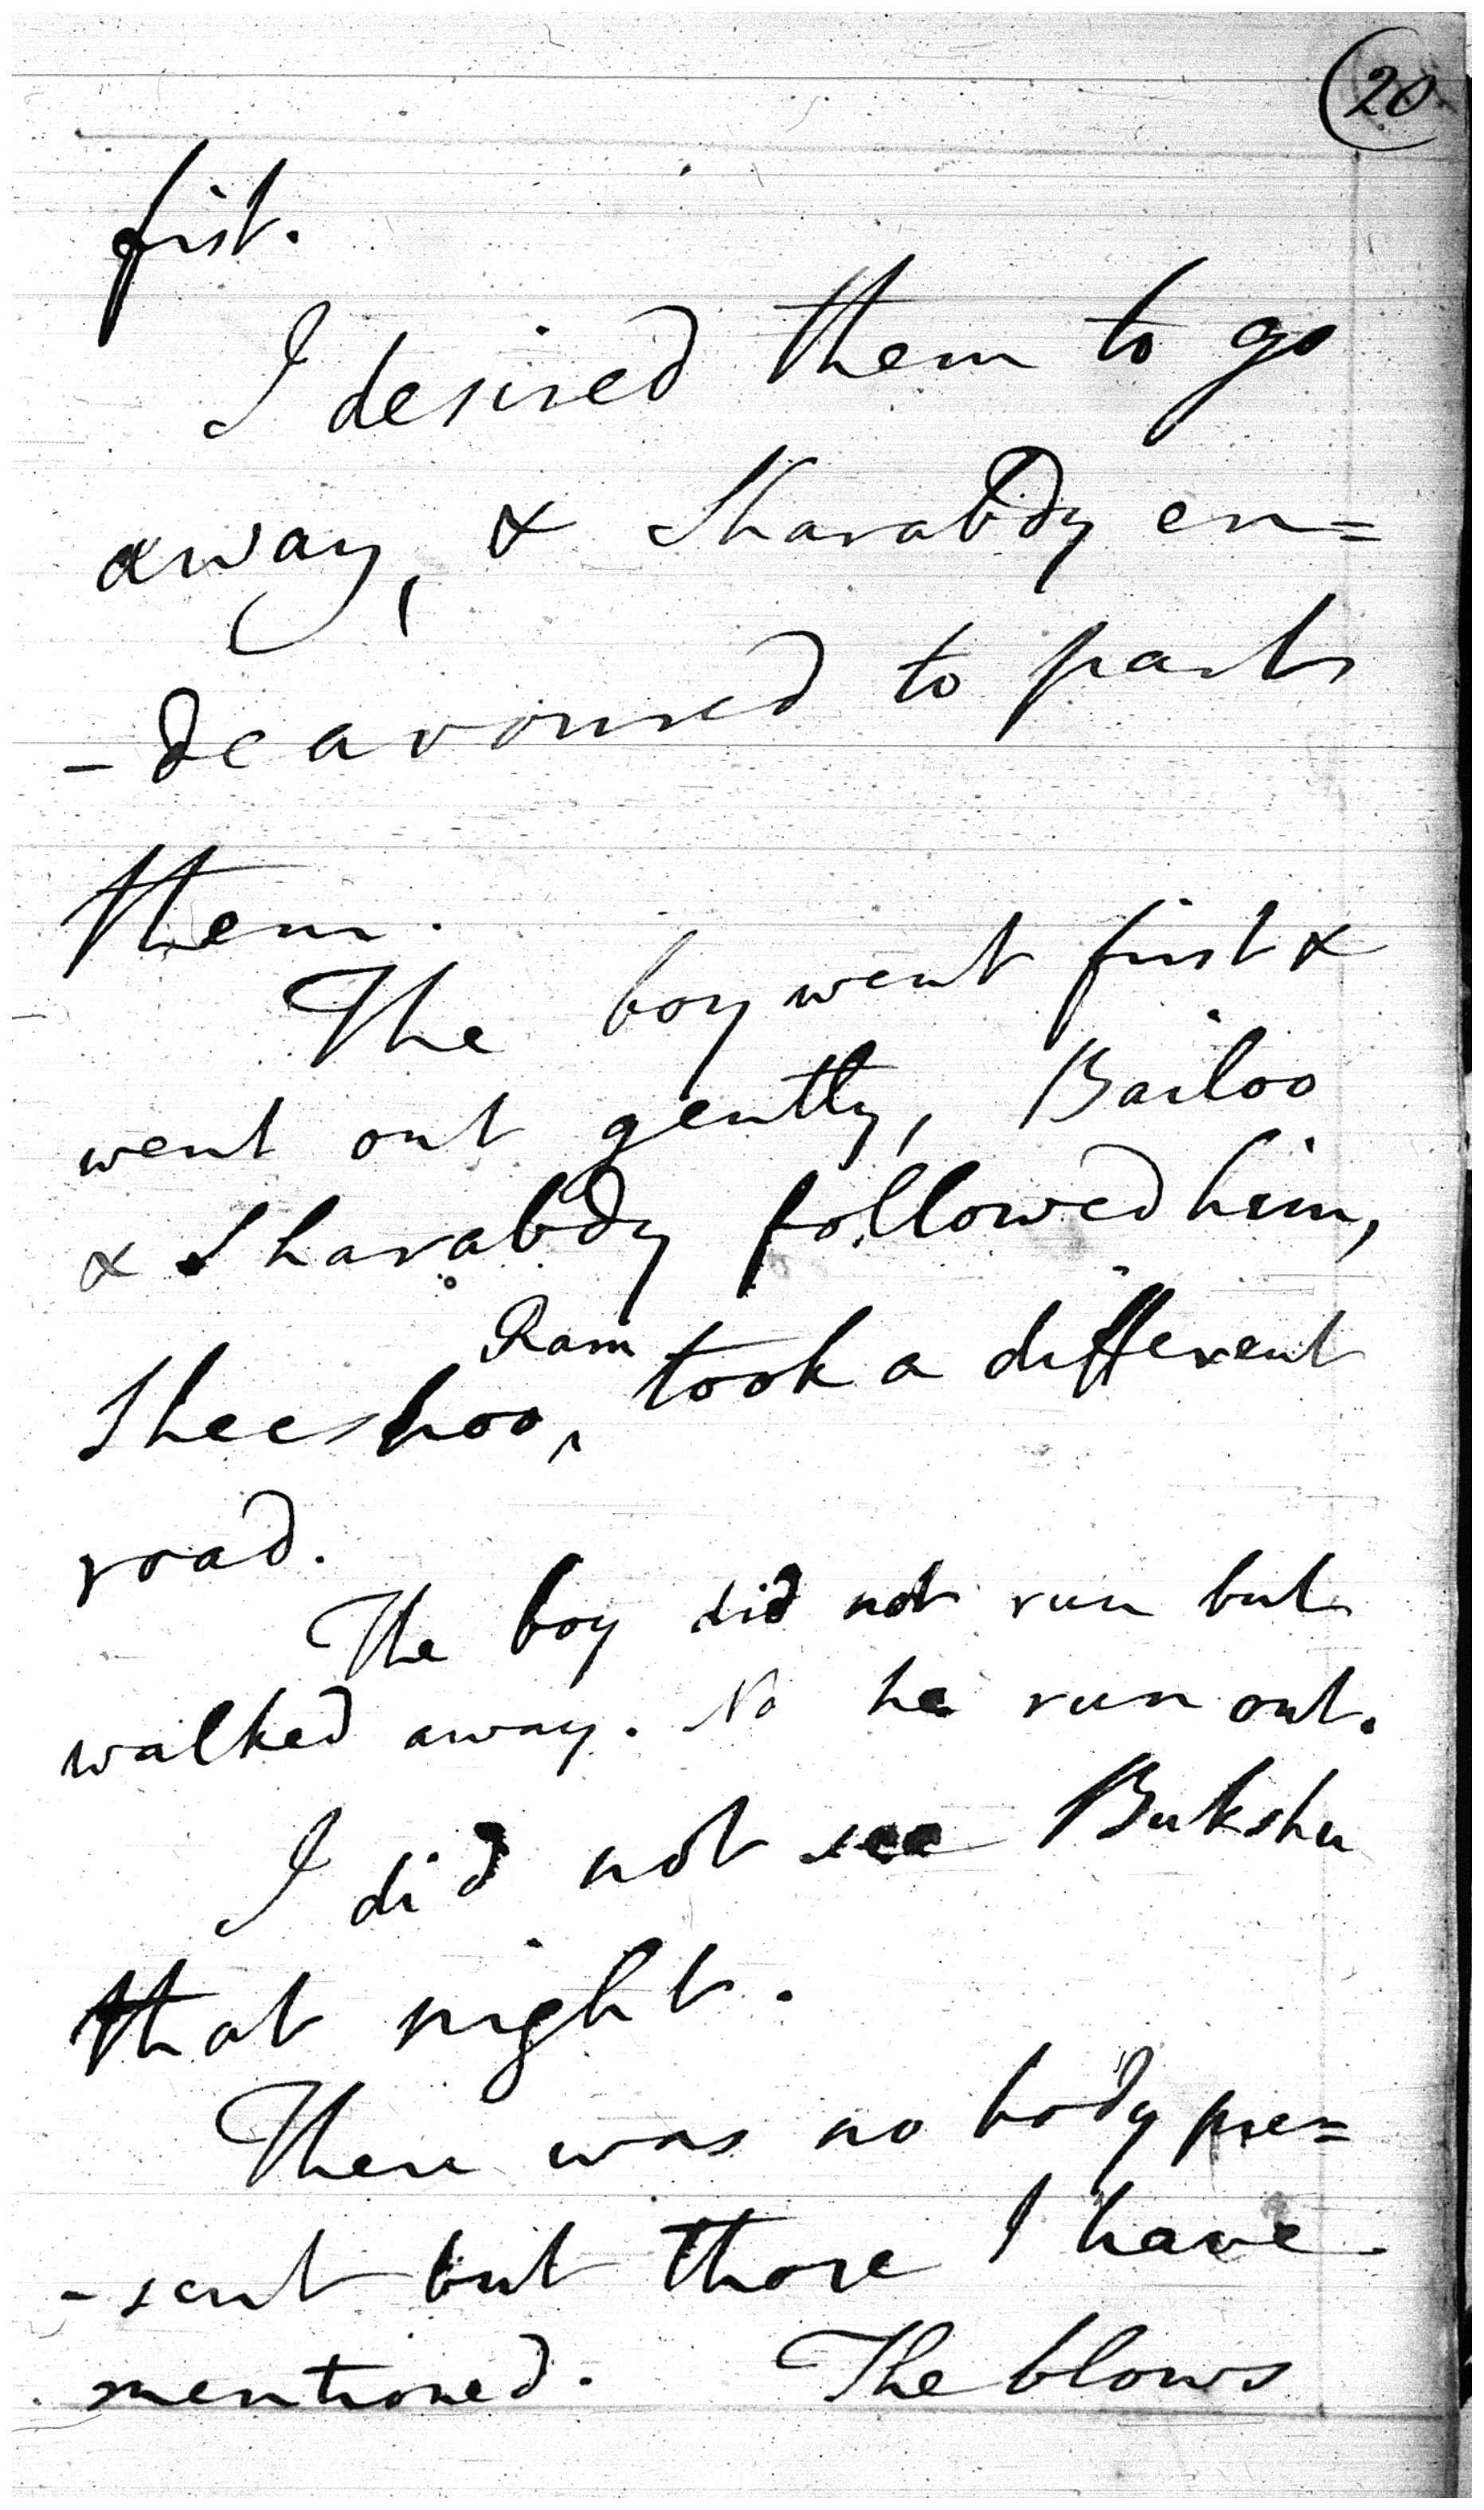 20
fist.
I desired them to go
away, & Sharabdy en=
-deavoured to part
them.
The boy went first &
went out gently, Bailoo
& Sharabdy followed him,
Sheeshoo, Ram took a different
road.
The boy did not run but
walked away. No he run out.
I did not see Bukshu
that night.
There was no body pre=
-sent but those I have
mentioned. The blows